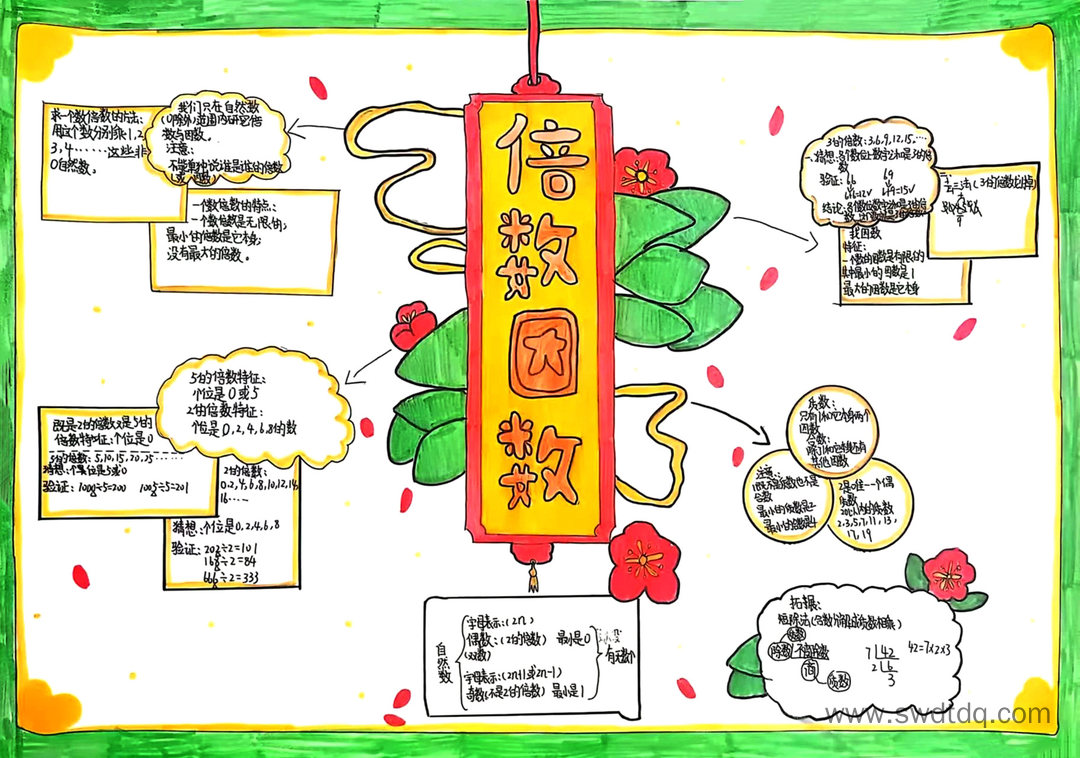 倍数因数
求一个数倍数的方法:
用这个数分别乘1,2,
3,4……这些非
0自然数。
我们只在自然数
(0除外)范围内研究倍
数与因数。
注意:
不能单独说谁是谁的倍数
一个数倍数的特点:
一个数倍数是无限的;
最小的倍数是它本身;
没有最大的倍数。
3的倍数:3,6,9,12,15,…
猜想:各个数位上数字之和是3的倍
数
验证: 66 69
6+6=12√ 6+9=15√
找因数
特征:
一个数的因数是有限的
其中最小的因数是1
最大的因数是它本身
5的倍数特征:
个位是0或5
2的倍数特征:
个位是0,2,4,6,8的数
既是2的倍数又是5的
倍数特征:个位是0
5的倍数:5,10,15,20,25……
猜想:个位是5或0
验证: 1000÷5=200 1005÷5=201
2的倍数:
0,2,4,6,8,10,12,14,
16……
猜想:个位是0,2,4,6,8
验证:202÷2=101
168÷2=84
666÷2=333
质数:
只有1和它本身两个
因数
合数:
除了1和它本身还有
其他因数
注意:
1既不是质数也不是
合数
最小的质数是2
最小的合数是4
2是唯一一个偶
质数
20以内的质数
2,3,5,7,11,13,
17,19
自然数
字母表示:(2n)
偶数:(2的倍数) 最小是0
(双数)
字母表示:(2n+1或2n-1)
奇数(不是2的倍数) 最小是1
有无数个
拓展:
短除法(合数分解成质数相乘)
除数
商
质数
7 42
2 6
3
42=7×2×3
www.swdtdq.com